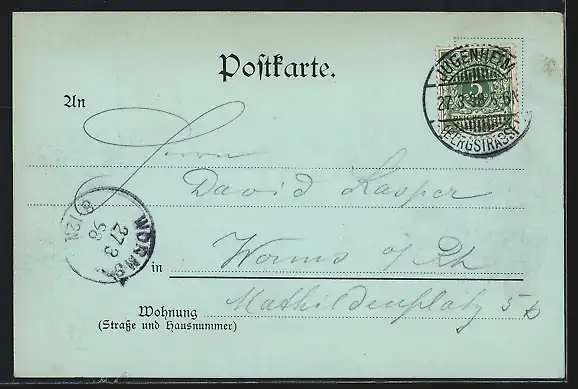 Postkarte.
JUGENHEIM
27 3 98
(BERGSTRASSE)
3
An
Herrn
David Kasper
WORMS
27 3
98
8-12N
in Worms a/Rh
Mathildenplatz 5 b
Wohnung
(Straße und Hausnummer)